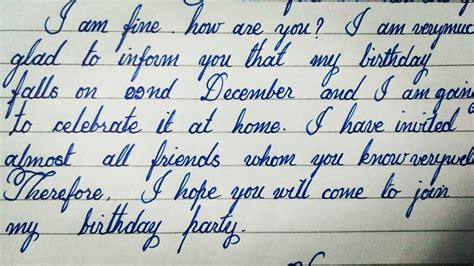 I am fine. how are you? I am verymuc
glad to inform you that my birthday
falls on 22nd December and I am goin
to celebrate it at home. I have invited
almost all friends whom you know verywel
Therefore, I hope you will come to join
my birthday party.